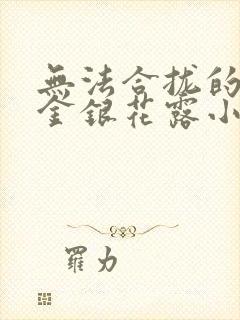 無法合拢的
金银花露小
羅力